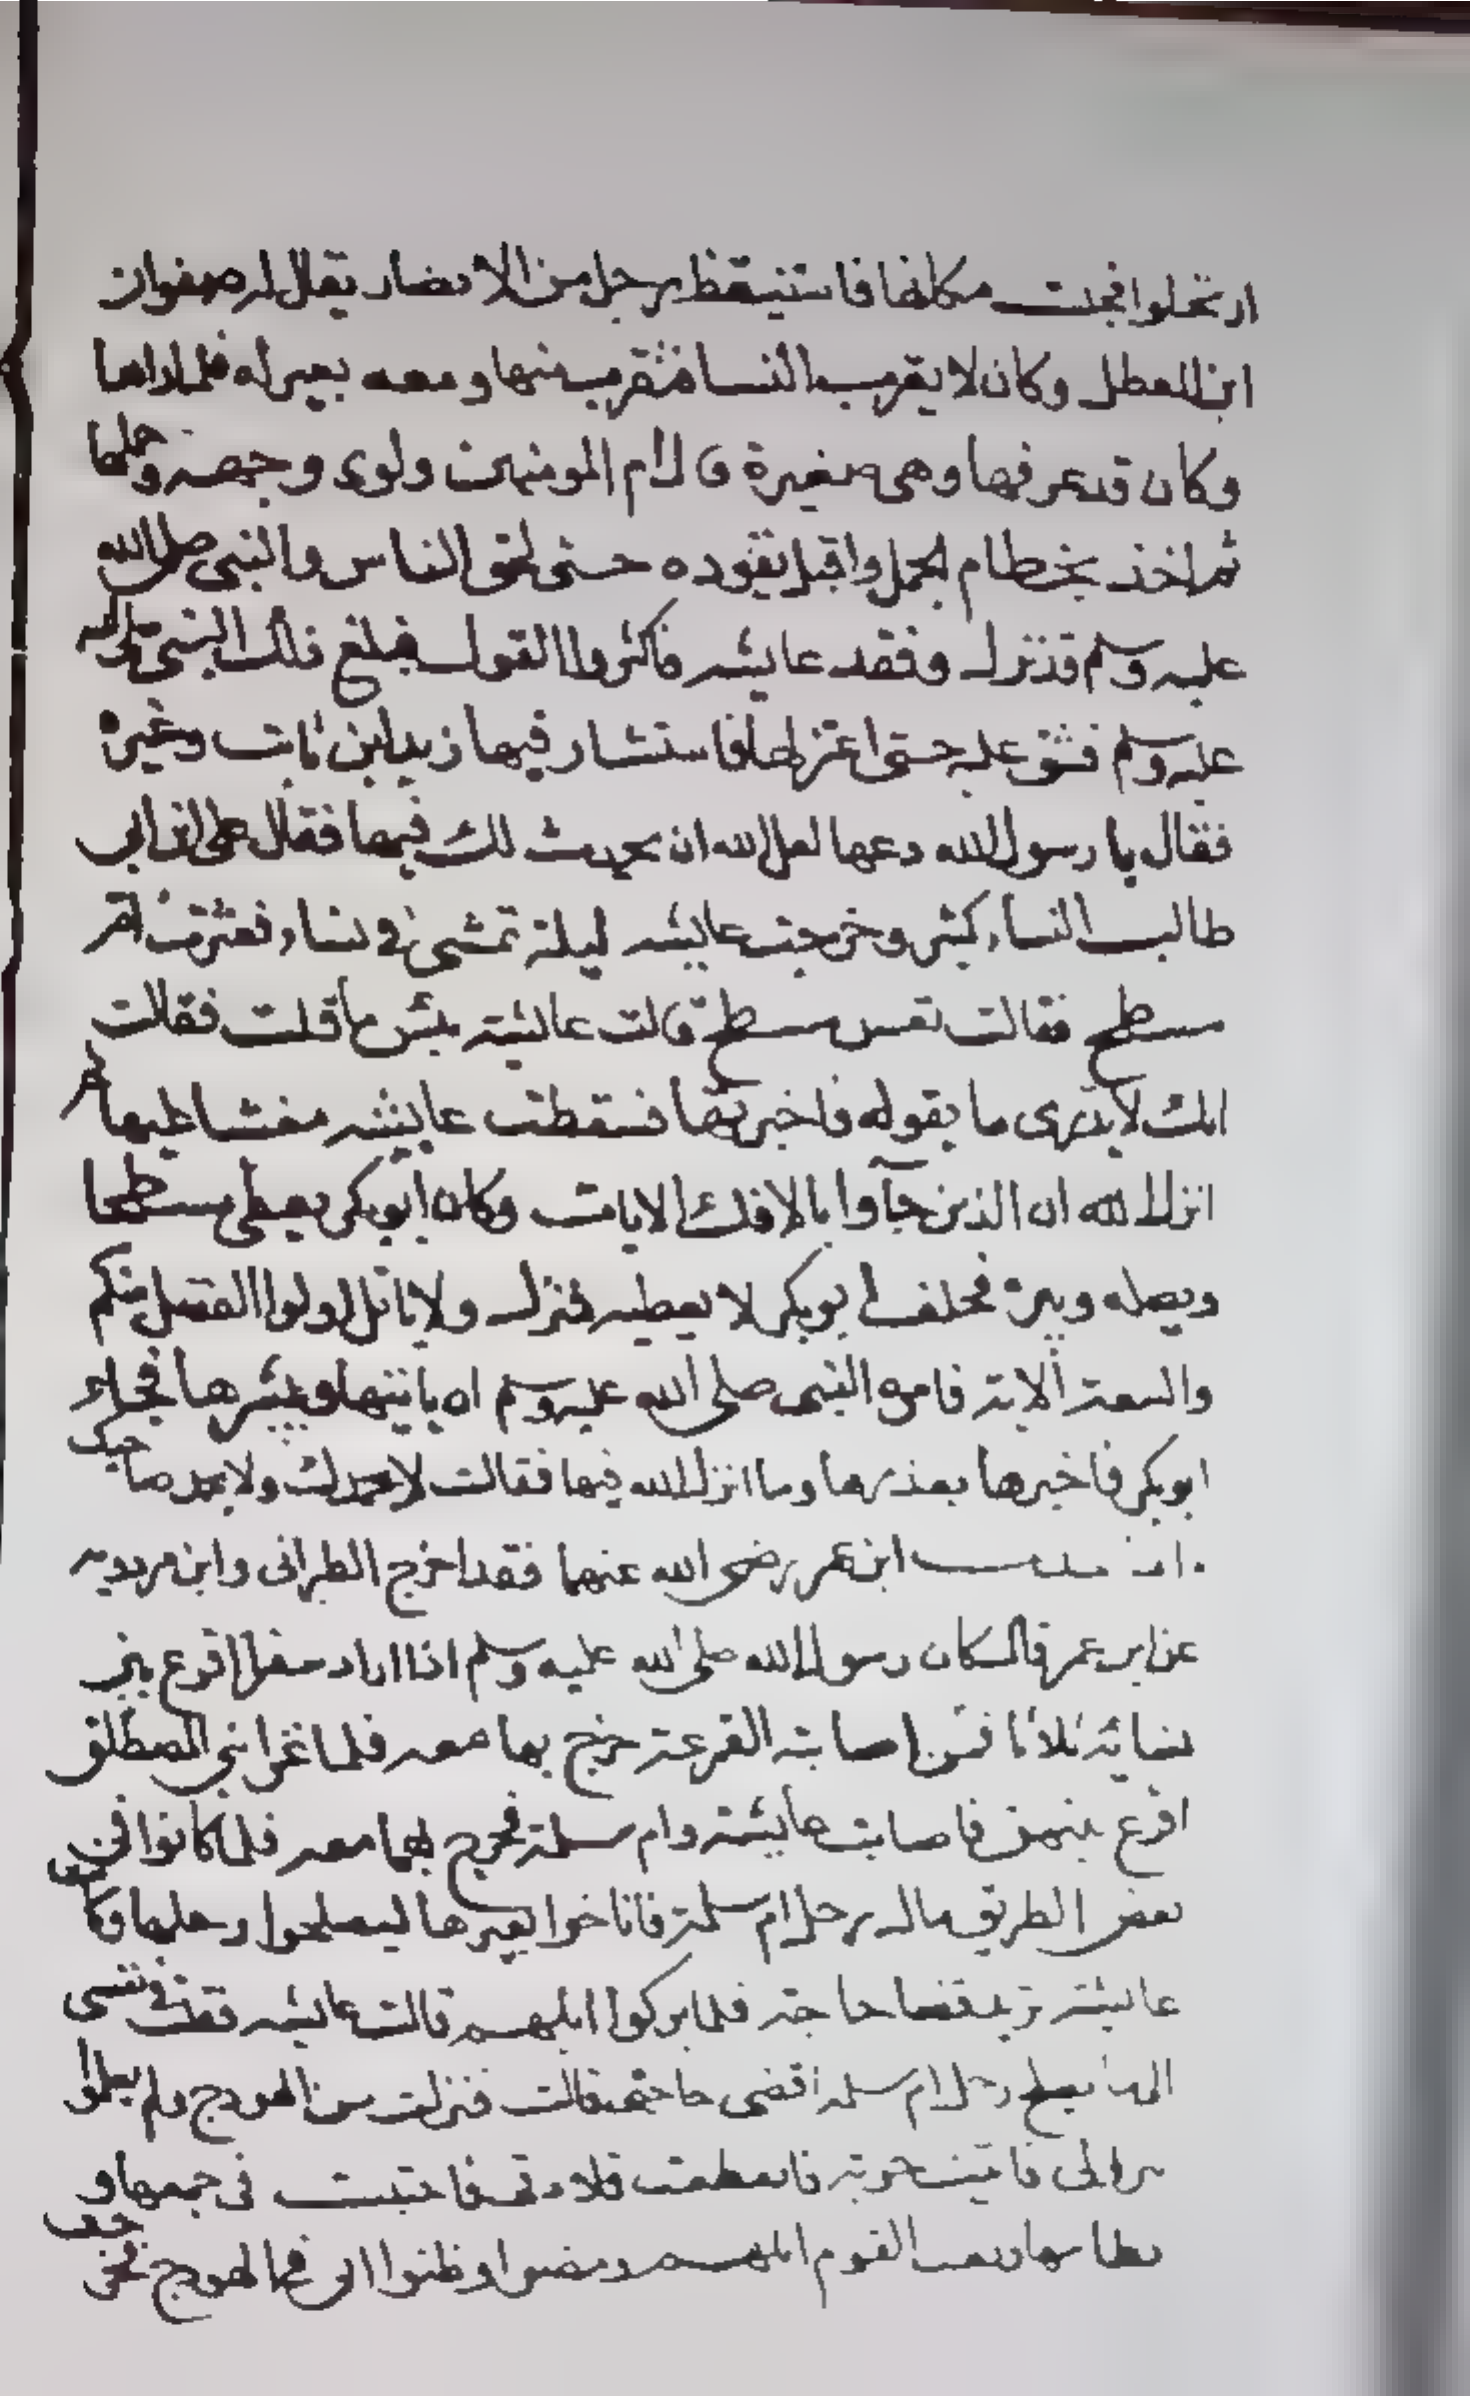 ارتحلوا فجدت مكانها فاستيقظ رجل من الانصار يقال له صفوان
ابن المعطل وكان لا يقرب النسا فتقرب منها ومعه بعير له فلما راها
وكان قد عرفها وهي صغيرة قال ام المومنين ولوى وجهه وحملها
ثم اخذ بخطام الجمل واقبل يقوده حتى لحق الناس والنبي صلى الله
عليه وسلم قد نزل وفقد عايشه فاكثروا القول فبلغ ذلك النبي صلى الله
عليه وسلم فشق عليه حتى اعتزلها فاستشار فيها زيد ابن ثابت وغيره
فقال يا رسول الله دعها لعل الله ان يحدث لك فيها فقال علي ابن ابي
طالب النساء كثير وخرجت عايشه ليلة تمشي في نساء فعثرت ام
مسطح فقالت تعس مسطح قالت عائشة بئس ما قلت فقالت
انك لا تدرى ما يقوله فاخبرتها فسقطت عايشه مغشا عليها ثم
انزل الله ان الذين جآوا بالافك الايات وكان ابو بكر يعطى مسطحا
ويصله ويبره فحلف ابو بكر لا يعطيه فنزل ولا ياتل اولوا الفضل منكم
والسعة الاية فامره النبي صلى الله عليه وسلم ان ياتيها ويبشرها فجاء
ابو بكر فاخبرها بعذرها وما انزل الله فيها فقالت لا بحمدك ولا بحمد صاحبك
ابن عمر رضى الله عنهما فقد اخرج الطبرانى وابن مردويه
عن ابن عمر قال كان رسول الله صلى الله عليه وسلم اذا اراد سفرا اقرع بين
نسائه ثلاثا فمن اصابته القرعة خرج بها معه فلما غزا بني المصطلق
اقرع بينهن فاصابت عايشة وام سلمة فخرج بهما معه فلما كانوا في
بعض الطريق مال رحل ام سلمة فاناخوا بعيرها ليصلحوا رحلها وكانت
عايشة تريد قضا حاجة فلما بركوا ابلهم قالت عايشه فقلت في نفسى
الى ما يصلح رحل ام سلمة اقضى حاجتى قالت فنزلت من الهودج ولم يعلموا
بنزولى فاتيت خربة فانقطعت قلادتى فاحتبست فى جمعها و
نظامها وبعث القوم ابلهم ومضوا وظنوا انى في الهودج فخرجت